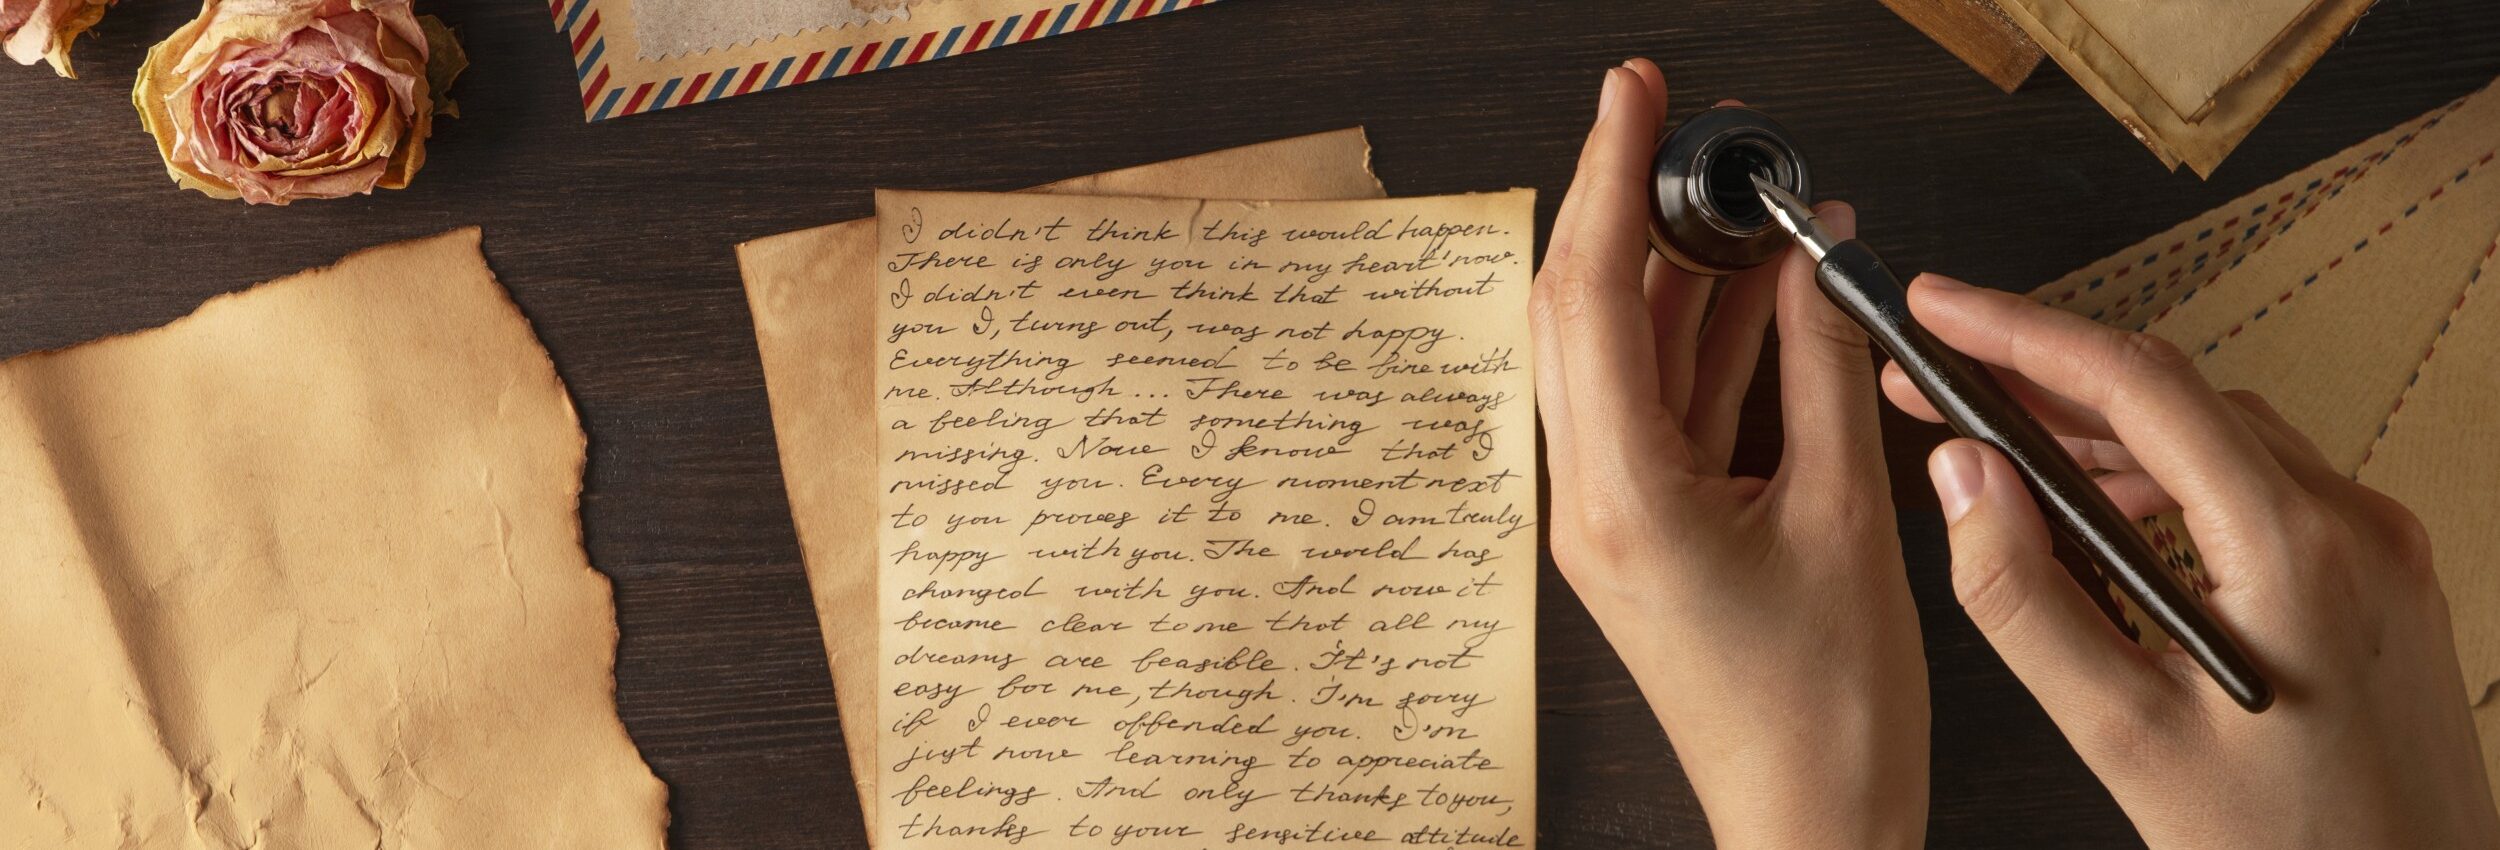 I didn't think this would happen.
There is only you in my heart now.
I didn't even think that without
you I, turns out, was not happy.
Everything seemed to be fine with
me. Although... There was always
a feeling that something was
missing. Now I know that I
missed you. Every moment next
to you proves it to me. I am truly
happy with you. The world has
changed with you. And now it
became clear to me that all my
dreams are feasible. It's not
easy for me, though. I'm sorry
if I ever offended you. I'm
just now learning to appreciate
feelings. And only thanks to you,
thanks to your sensitive attitude